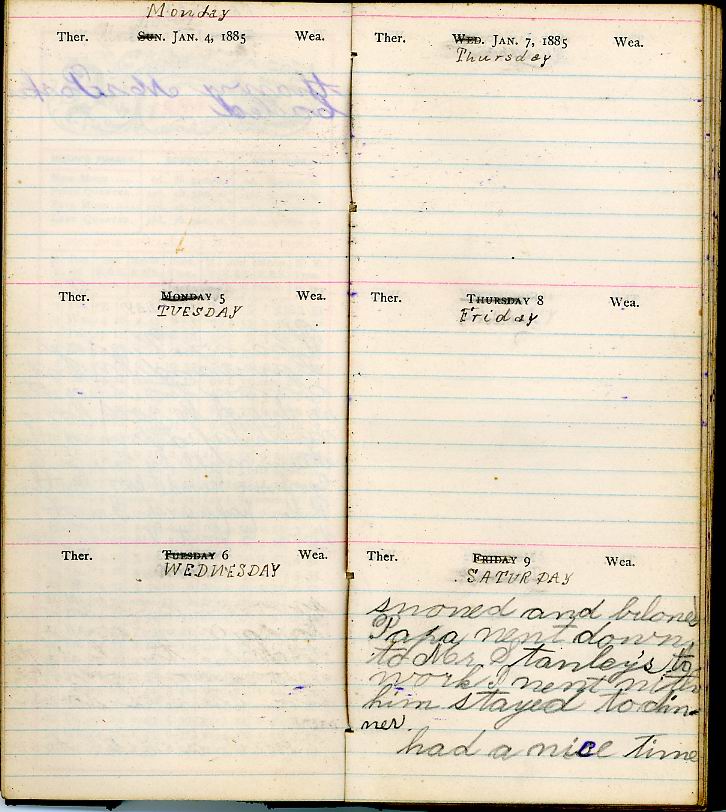 Monday
Ther. Sun. Jan. 4, 1885 Wea.
Monday 5
Ther. Wea.
TUESDAY
Ther. Tuesday 6 Wea.
WEDNESDAY
Ther. Wed. Jan. 7, 1885 Wea.
Thursday
Ther. Thursday 8 Wea.
Friday
Ther. Friday 9 Wea.
SATURDAY
snoned and bloned
Papa went down
to Mr Stanley's to
work I went with
him stayed to din-
ner.
had a nice time